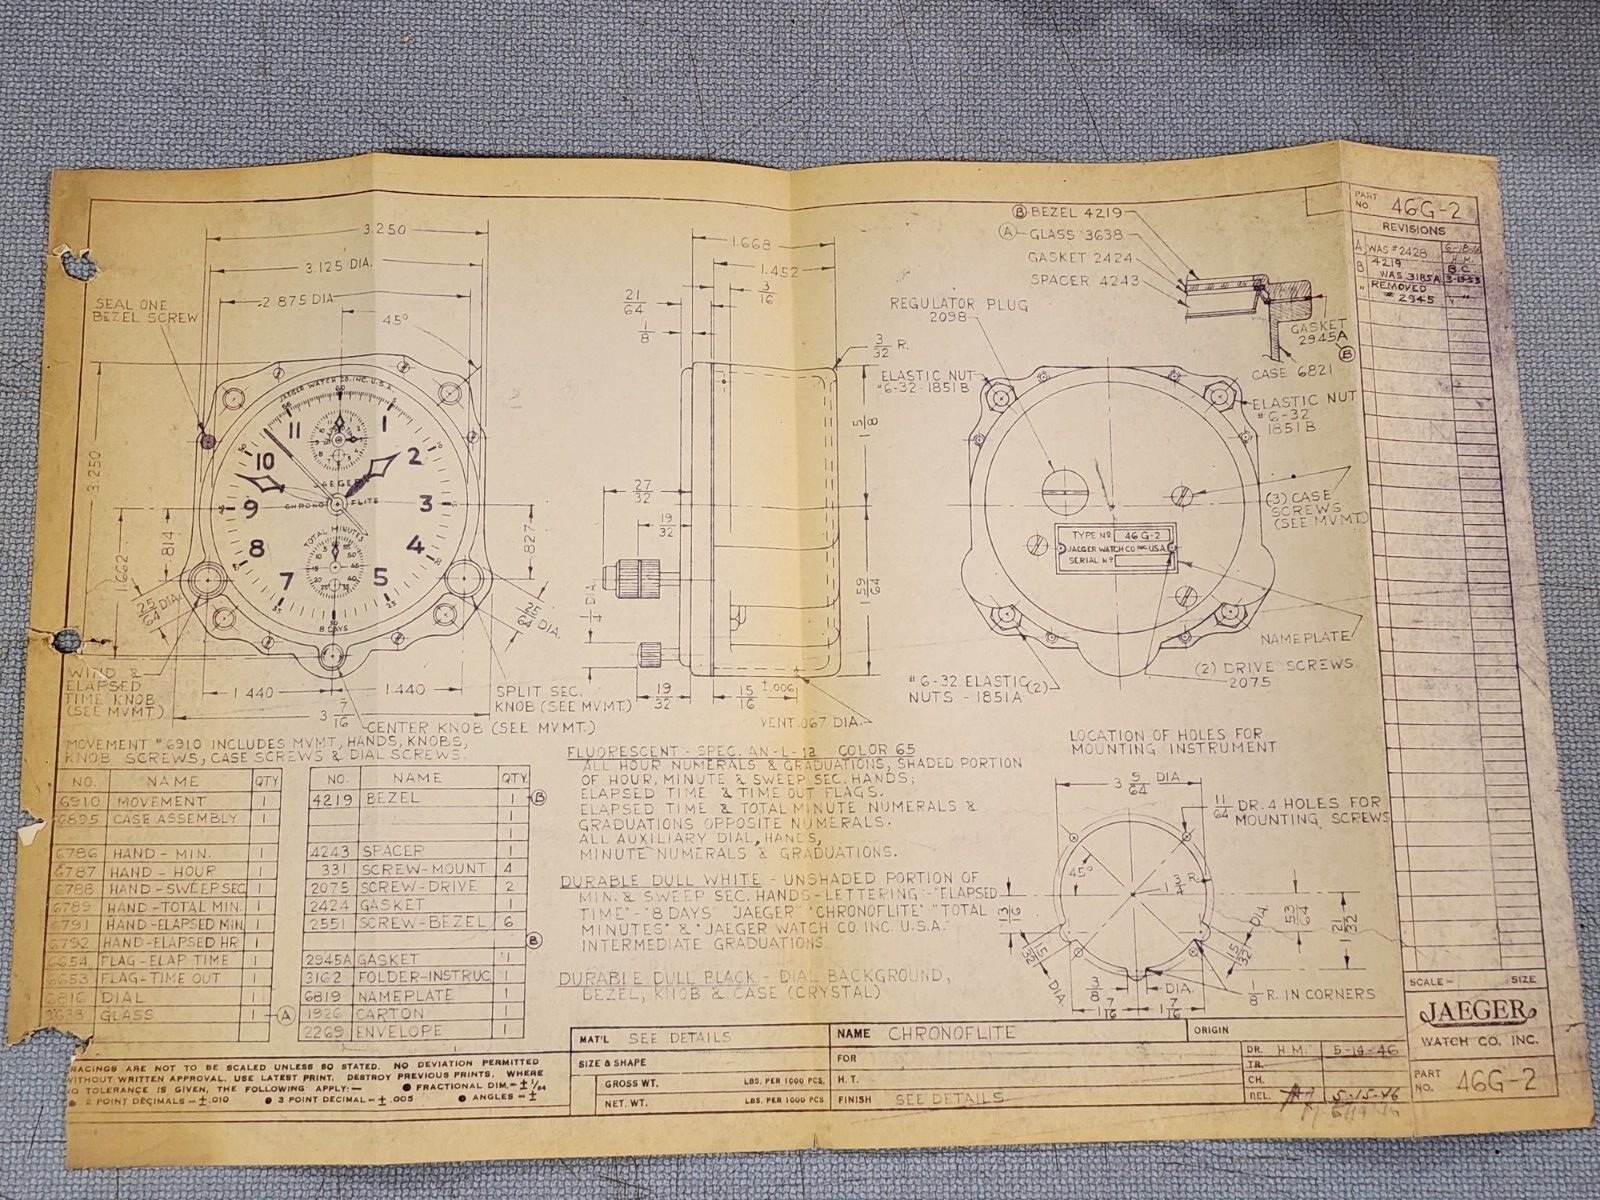 PART NO. 46G-2
REVISIONS
A WAS #2428
H.M.
B 4219 B.C.
WAS 3185A 3-19-53
" REMOVED
# 2945 " "
Ⓑ BEZEL 4219
Ⓐ GLASS 3638
GASKET 2424
SPACER 4243
GASKET
2945A
Ⓑ
CASE 6821
3.250
3.125 DIA.
2.875 DIA
45°
SEAL ONE
BEZEL SCREW
3.250
1.662
.814
.827
25/64 DIA.
25/64 DIA.
JAEGER WATCH CO. INC. U.S.A.
60
5
10
25
30
50
55
11
1
10
2
9
3
8
4
7
5
JAEGER
CHRONO FLITE
TOTAL MINUTES
8 DAYS
WIND &
ELAPSED
TIME KNOB
(SEE MVMT.)
1.440
1.440
3 7/16
SPLIT SEC.
KNOB (SEE MVMT.)
CENTER KNOB (SEE MVMT.)
1.668
1.452
3/16
21/64
1/8
3/32 R.
1 5/8
27/32
19/32
1/4 DIA.
1 59/64
19/32
15/16 ±.006
VENT .067 DIA.
REGULATOR PLUG
2098
ELASTIC NUT
#6-32-1851B
ELASTIC NUT
# 6-32
1851B
(3) CASE
SCREWS
(SEE MVMT)
TYPE Nº 46 G-2
JAEGER WATCH CO. INC. U.S.A.
SERIAL Nº
NAMEPLATE
(2) DRIVE SCREWS
2075
#6-32 ELASTIC (2)
NUTS - 1851A
LOCATION OF HOLES FOR
MOUNTING INSTRUMENT
3 9/64 DIA
11/64 DR. 4 HOLES FOR
MOUNTING SCREWS
45°
1 3/4 R.
13/16
53/64
1 21/32
15/32 DIA.
15/32 DIA.
3/8 DIA.
1 7/16
1 7/16
1/8 R. IN CORNERS
MOVEMENT #6910 INCLUDES MVMT, HANDS, KNOBS,
KNOB SCREWS, CASE SCREWS & DIAL SCREWS.
NO. NAME QTY
6910 MOVEMENT 1
6895 CASE ASSEMBLY 1
6786 HAND - MIN. 1
6787 HAND - HOUR 1
6788 HAND - SWEEP SEC 1
6789 HAND - TOTAL MIN. 1
6791 HAND - ELAPSED MIN 1
6792 HAND - ELAPSED HR 1
6654 FLAG - ELAP. TIME 1
6653 FLAG - TIME OUT 1
6816 DIAL 1
3638 GLASS 1 Ⓐ
NO. NAME QTY.
4219 BEZEL 1 Ⓑ
1
1
4243 SPACER 1
331 SCREW-MOUNT 4
2075 SCREW-DRIVE 2
2424 GASKET 1
2551 SCREW-BEZEL 6
Ⓑ
2945A GASKET 1
3162 FOLDER-INSTRUC 1
6819 NAMEPLATE 1
1926 CARTON 1
2269 ENVELOPE 1
FLUORESCENT - SPEC. AN-L-1a COLOR 65
ALL HOUR NUMERALS & GRADUATIONS, SHADED PORTION
OF HOUR, MINUTE & SWEEP SEC. HANDS;
ELAPSED TIME & TIME OUT FLAGS.
ELAPSED TIME & TOTAL MINUTE NUMERALS &
GRADUATIONS OPPOSITE NUMERALS.
ALL AUXILIARY DIAL, HANDS,
MINUTE NUMERALS & GRADUATIONS.
DURABLE DULL WHITE - UNSHADED PORTION OF
MIN. & SWEEP SEC. HANDS - LETTERING - "ELAPSED
TIME" - "8 DAYS" "JAEGER" "CHRONOFLITE" "TOTAL
MINUTES" & "JAEGER WATCH CO. INC. U.S.A."
INTERMEDIATE GRADUATIONS
DURABLE DULL BLACK - DIAL BACKGROUND,
BEZEL, KNOB & CASE (CRYSTAL)
RACINGS ARE NOT TO BE SCALED UNLESS SO STATED. NO DEVIATION PERMITTED
WITHOUT WRITTEN APPROVAL. USE LATEST PRINT. DESTROY PREVIOUS PRINTS. WHERE
NO TOLERANCE IS GIVEN, THE FOLLOWING APPLY:— ● FRACTIONAL DIM.= ± 1/64
● 2 POINT DECIMALS = ± .010 ● 3 POINT DECIMAL = ± .005 ● ANGLES = ±
MAT'L SEE DETAILS
SIZE & SHAPE
GROSS WT. LBS. PER 1000 PCS.
NET. WT. LBS. PER 1000 PCS
NAME CHRONOFLITE
ORIGIN
FOR
H. T.
FINISH SEE DETAILS
DR. H.M. 5-14-46
TR.
CH.
REL. 5-15-46
SCALE- SIZE
JAEGER
WATCH CO. INC.
PART NO. 46G-2